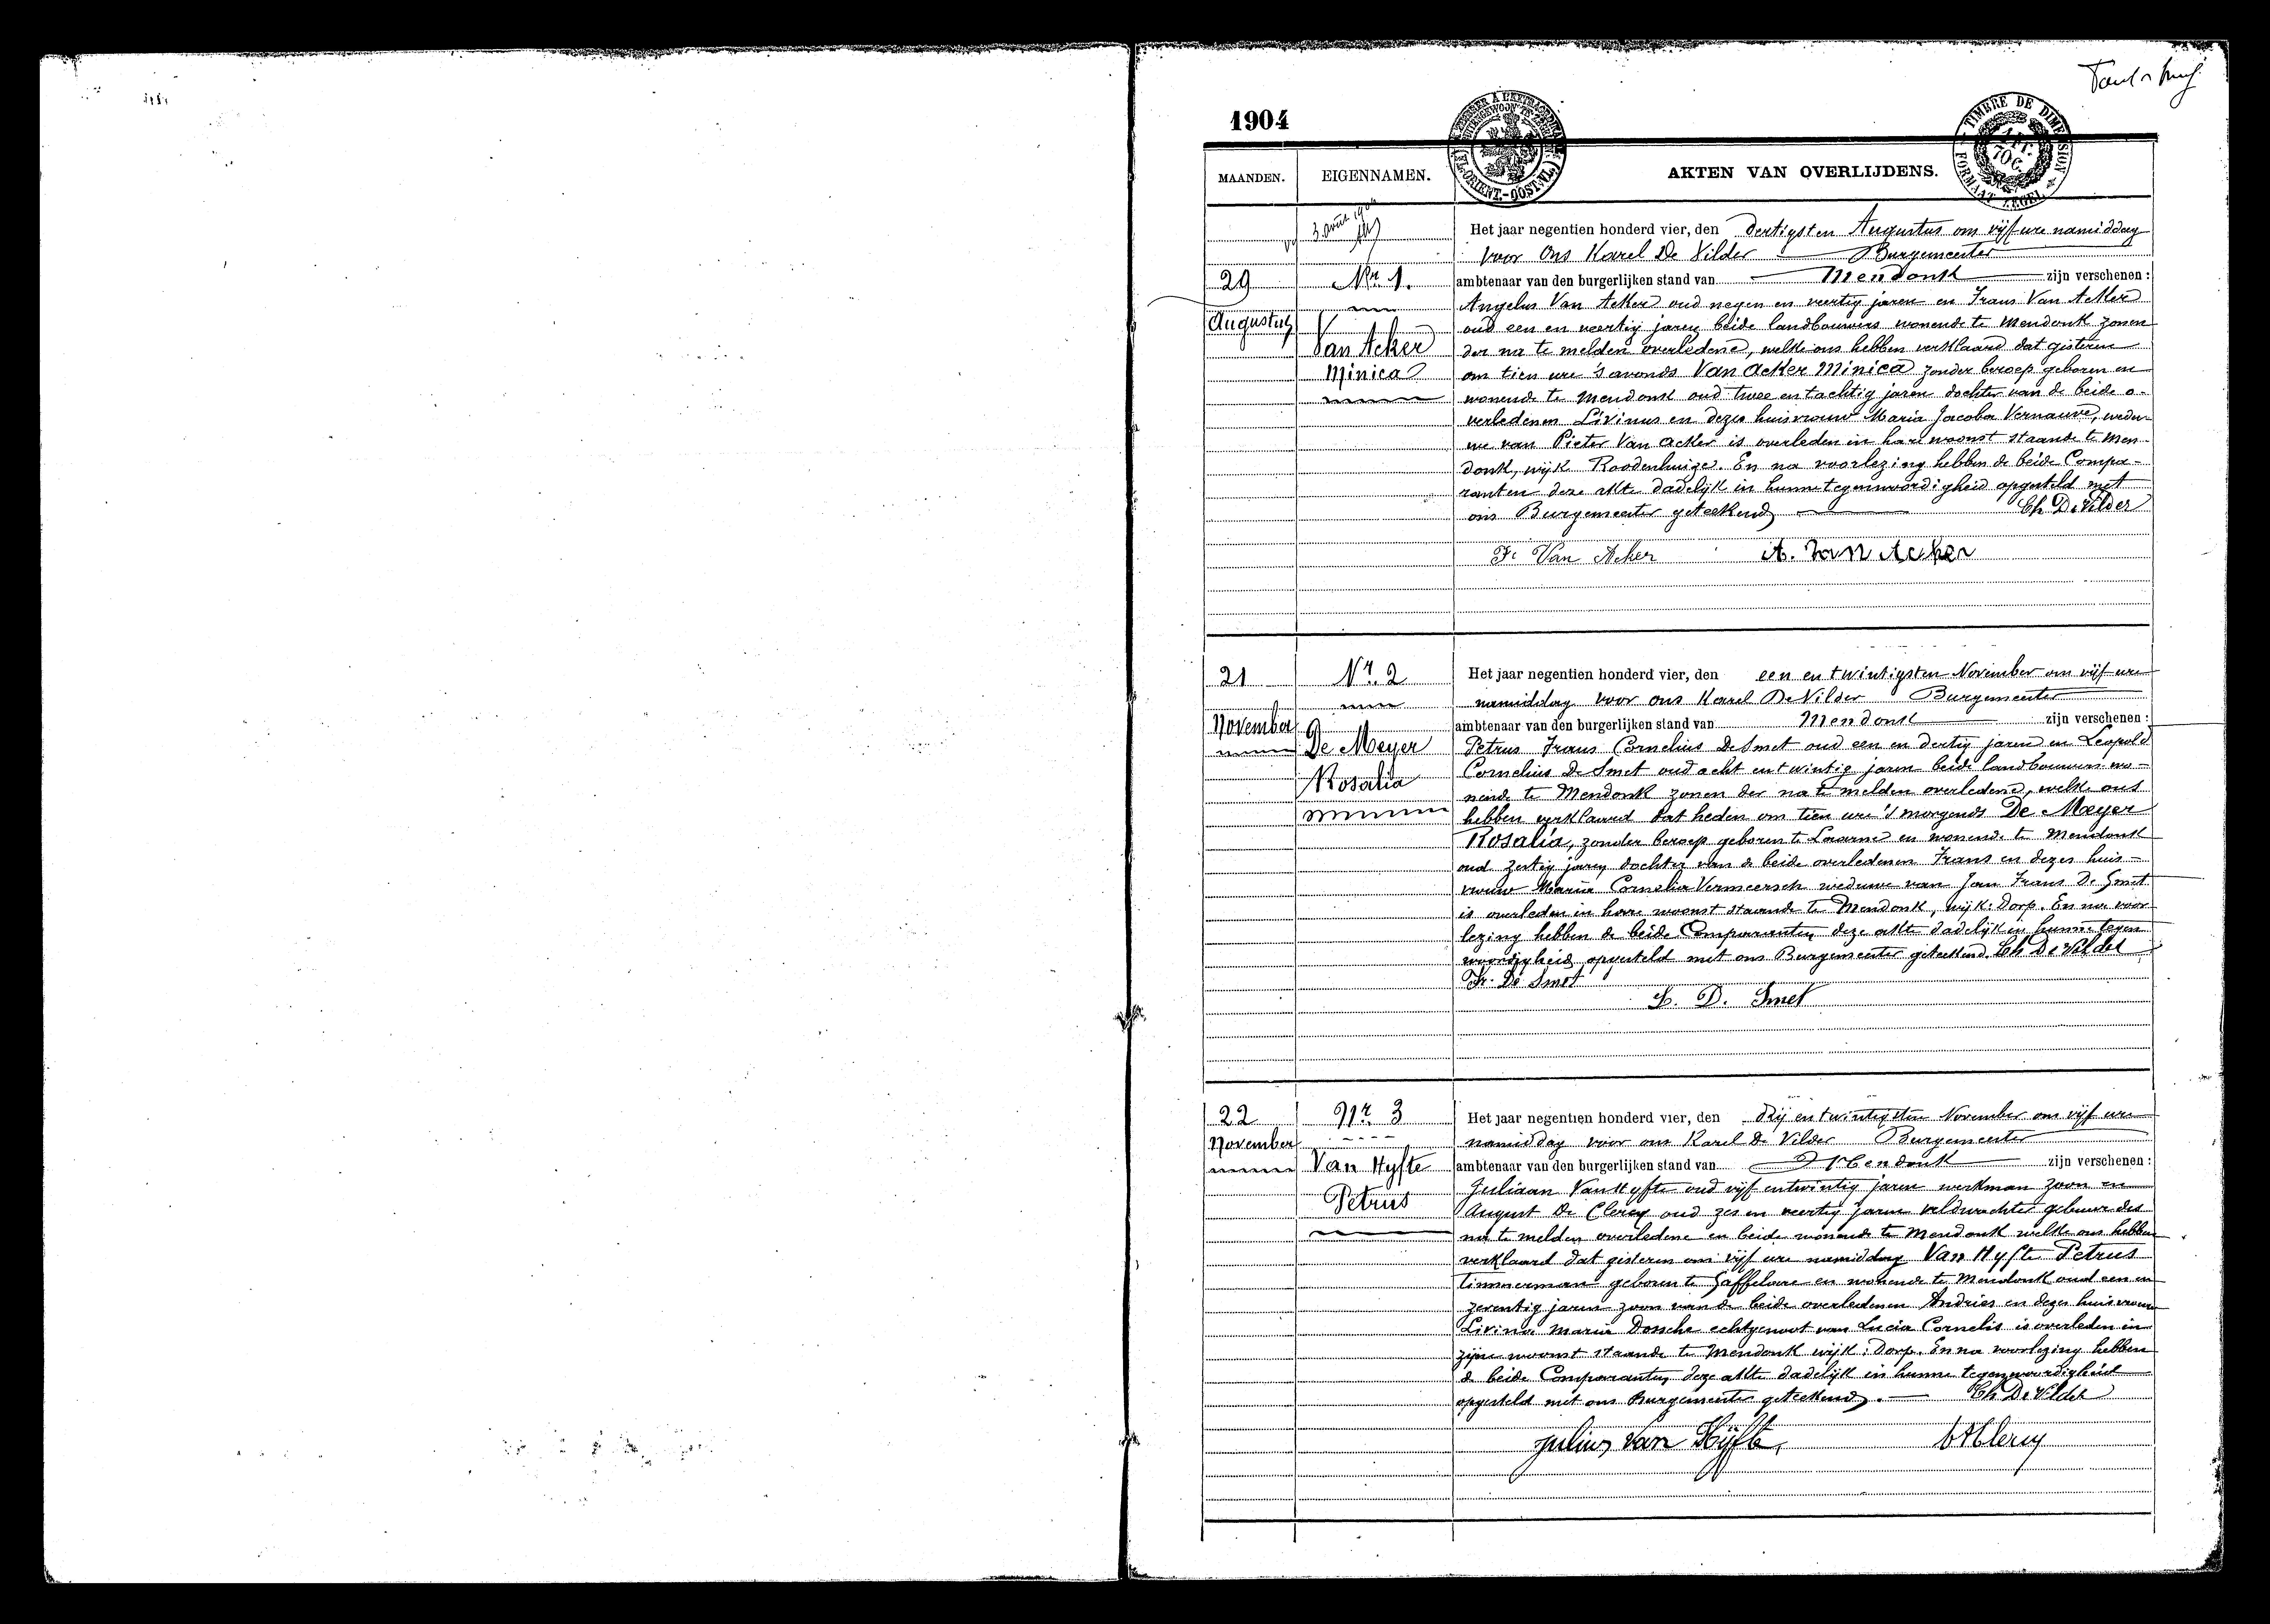 1904
MAANDEN. EIGENNAMEN. AKTEN VAN OVERLIJDENS.
TIMBRE DE DIMENSION
FORMAAT ZEGEL
29
Augustus
Nr 1.
Van Acker
Minica
Het jaar negentien honderd vier, den dertigsten Augustus om vijf ure namiddag
voor Ons Karel De Vilder Burgemeester
ambtenaar van den burgerlijken stand van Mendonk zijn verschenen :
Angelus Van Acker oud negen en veertig jaren en Frans Van Acker
oud een en veertig jaren beide landbouwers wonende te Mendonk zonen
der na te melden overledene, welke ons hebben verklaard dat gisteren
om tien ure 's avonds Van Acker Minica zonder beroep geboren en
wonende te Mendonk oud twee en tachtig jaren dochter van de beide o-
verledenen Livinus en dezes huisvrouw Maria Jacoba Vernauve, wedu-
we van Pieter Van Acker is overleden in hare woonst staande te Men-
donk, wijk Roodenhuize. En na voorlezing hebben de beide Compa-
ranten deze akte dadelijk in hunne tegenwoordigheid opgesteld met
ons Burgemeester geteekend Ch De Vilder
F. Van Acker A. Van Acker
21
November
Nr. 2
De Meyer
Rosalia
Het jaar negentien honderd vier, den een en twintigsten November om vijf ure
namiddag voor ons Karel De Vilder Burgemeester
ambtenaar van den burgerlijken stand van Mendonk zijn verschenen :
Petrus Frans Cornelius De Smet oud een en dertig jaren en Leopold
Cornelius De Smet oud acht en twintig jaren beide landbouwers wo-
nende te Mendonk zonen der na te melden overledene, welke ons
hebben verklaard dat heden om tien ure 's morgends De Meyer
Rosalia, zonder beroep geboren te Laarne en wonende te Mendonk
oud zestig jaren dochter van de beide overledenen Frans en dezes huis-
vrouw Maria Cornelia Vermeersch weduwe van Jan Frans De Smet
is overleden in hare woonst staande te Mendonk, wijk: Dorp. En na voor
lezing hebben de beide Comparanten deze akte dadelijk in hunne tegen
woordigheid opgesteld met ons Burgemeester geteekend. Ch De Vilder
Fr. De Smet
L. D. Smet
22
November
Nr. 3
Van Hyfte
Petrus
Het jaar negentien honderd vier, den drij en twintigsten November om vijf ure
namiddag voor ons Karel De Vilder Burgemeester
ambtenaar van den burgerlijken stand van Mendonk zijn verschenen :
Juliaan Van Hyfte oud vijf en twintig jaren werkman zoon en
August De Clercq oud zes en veertig jaren veldwachter gebuur des
na te melden overledene en beide wonende te Mendonk welke ons hebben
verklaard dat gisteren om vijf ure namiddag Van Hyfte Petrus
timmerman geboren te Saffelare en wonende te Mendonk oud een en
zeventig jaren zoon van de beide overledenen Andries en dezes huisvrouw
Livina Maria Dossche echtgenoot van Lucia Cornelis is overleden in
zijne woonst staande te Mendonk wijk: Dorp. En na voorlezing hebben
de beide Comparanten deze akte dadelijk in hunne tegenwoordigheid
opgesteld met ons Burgemeester geteekend. Ch De Vilder
Julius Van Hijfte,